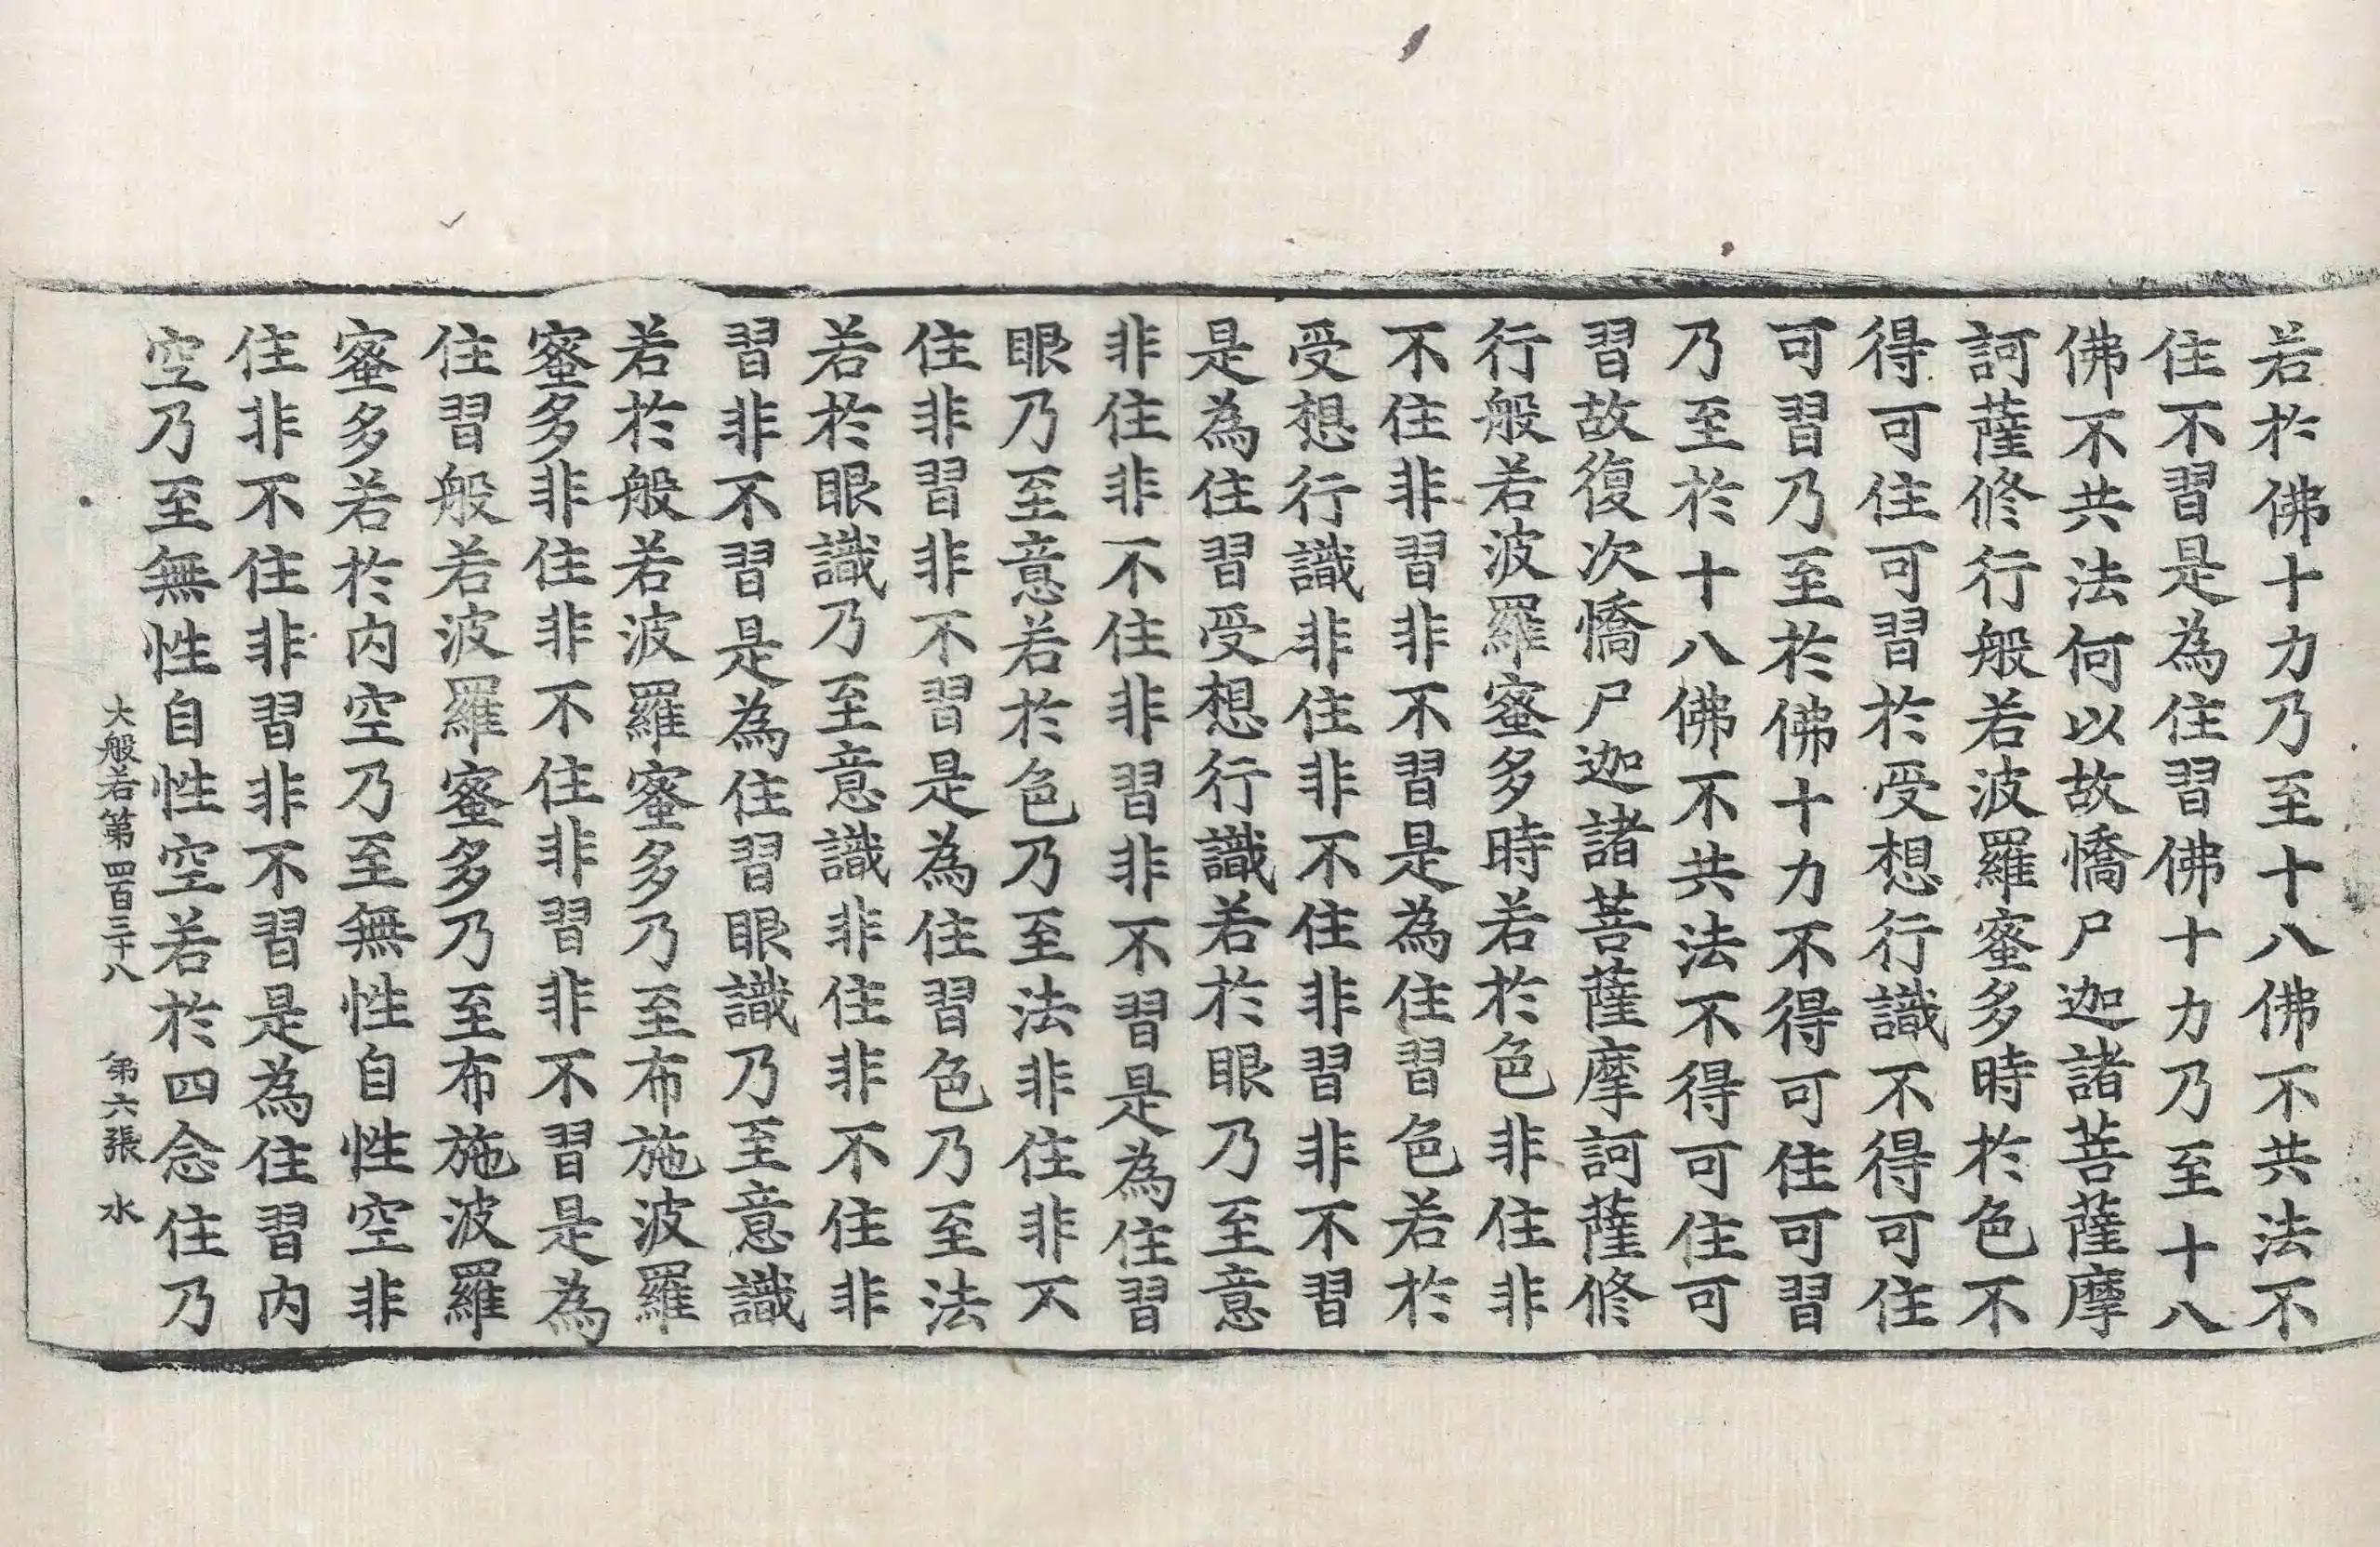 若於佛十力乃至十八佛不共法不
住不習是為住習佛十力乃至十八
佛不共法何以故憍尸迦諸菩薩摩
訶薩修行般若波羅蜜多時於色不
得可住可習於受想行識不得可住
可習乃至於佛十力不得可住可習
乃至於十八佛不共法不得可住可
習故復次憍尸迦諸菩薩摩訶薩修
行般若波羅蜜多時若於色非住非
不住非習非不習是為住習色若於
受想行識非住非不住非習非不習
是為住習受想行識若於眼乃至意
非住非不住非習非不習是為住習
眼乃至意若於色乃至法非住非不
住非習非不習是為住習色乃至法
若於眼識乃至意識非住非不住非
習非不習是為住習眼識乃至意識
若於般若波羅蜜多乃至布施波羅
蜜多非住非不住非習非不習是為
住習般若波羅蜜多乃至布施波羅
蜜多若於内空乃至無性自性空非
住非不住非習非不習是為住習内
空乃至無性自性空若於四念住乃
大般若第四百三十八 第六張 水